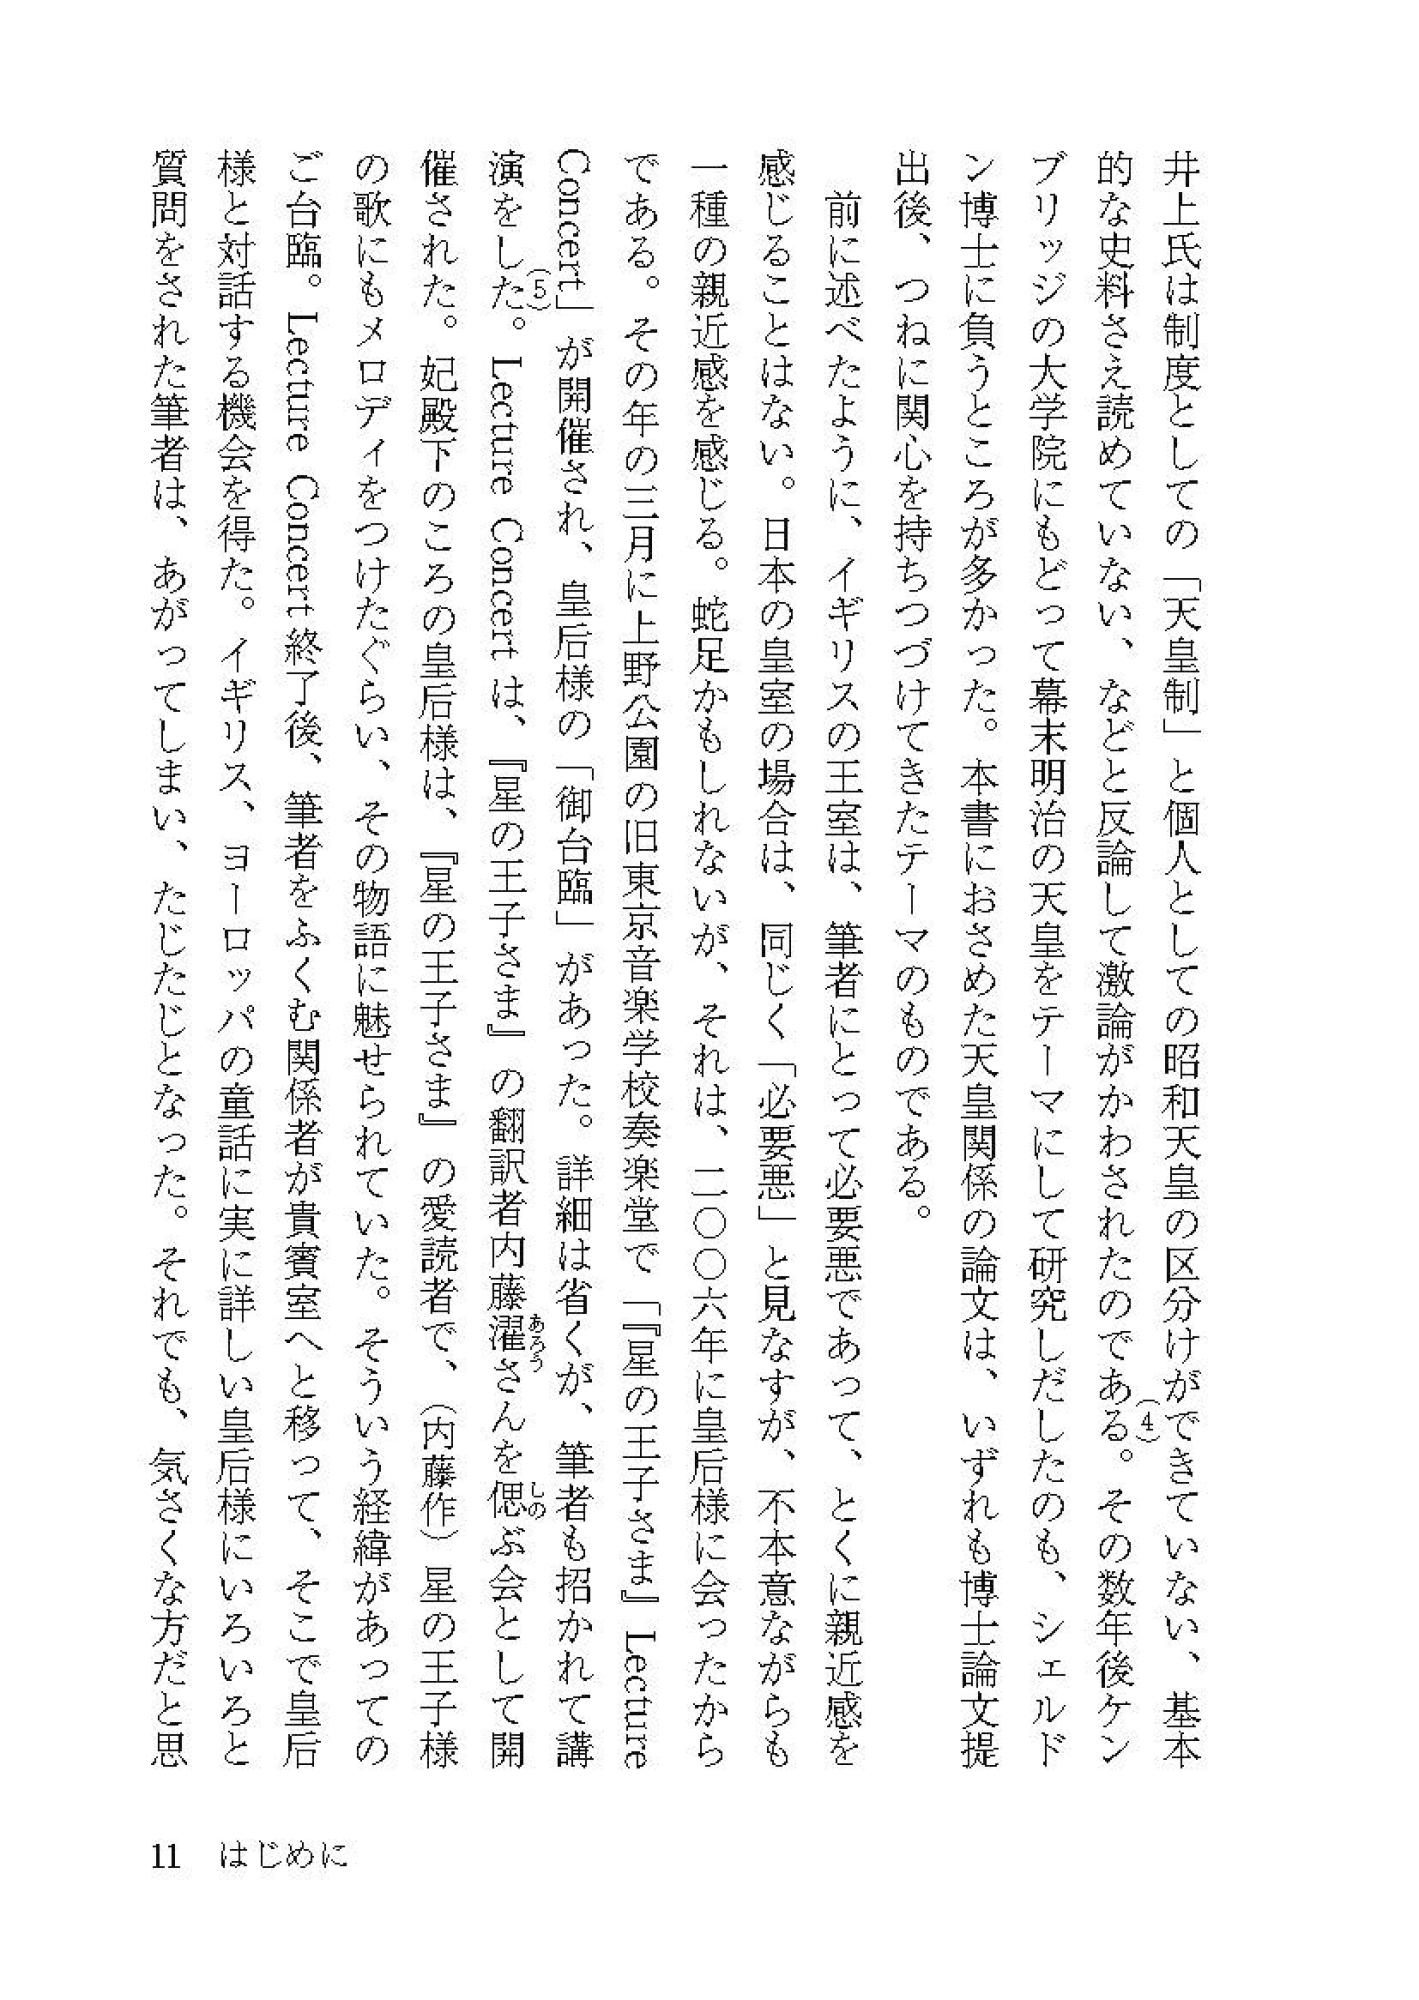 井上氏は制度としての「天皇制」と個人としての昭和天皇の区分けができていない、基本
的な史料さえ読めていない、などと反論して激論がかわされたのである(4)。その数年後ケン
ブリッジの大学院にもどって幕末明治の天皇をテーマにして研究しだしたのも、シェルド
ン博士に負うところが多かった。本書におさめた天皇関係の論文は、いずれも博士論文提
出後、つねに関心を持ちつづけてきたテーマのものである。
　前に述べたように、イギリスの王室は、筆者にとって必要悪であって、とくに親近感を
感じることはない。日本の皇室の場合は、同じく「必要悪」と見なすが、不本意ながらも
一種の親近感を感じる。蛇足かもしれないが、それは、二〇〇六年に皇后様に会ったから
である。その年の三月に上野公園の旧東京音楽学校奏楽堂で「『星の王子さま』Lecture
Concert」が開催され、皇后様の「御台臨」があった。詳細は省くが、筆者も招かれて講
演をした(5)。Lecture Concert は、『星の王子さま』の翻訳者内藤濯(あろう)さんを偲(しの)ぶ会として開
催された。妃殿下のころの皇后様は、『星の王子さま』の愛読者で、(内藤作)星の王子様
の歌にもメロディをつけたぐらい、その物語に魅せられていた。そういう経緯があっての
ご台臨。Lecture Concert 終了後、筆者をふくむ関係者が貴賓室へと移って、そこで皇后
様と対話する機会を得た。イギリス、ヨーロッパの童話に実に詳しい皇后様にいろいろと
質問をされた筆者は、あがってしまい、たじたじとなった。それでも、気さくな方だと思
11　はじめに